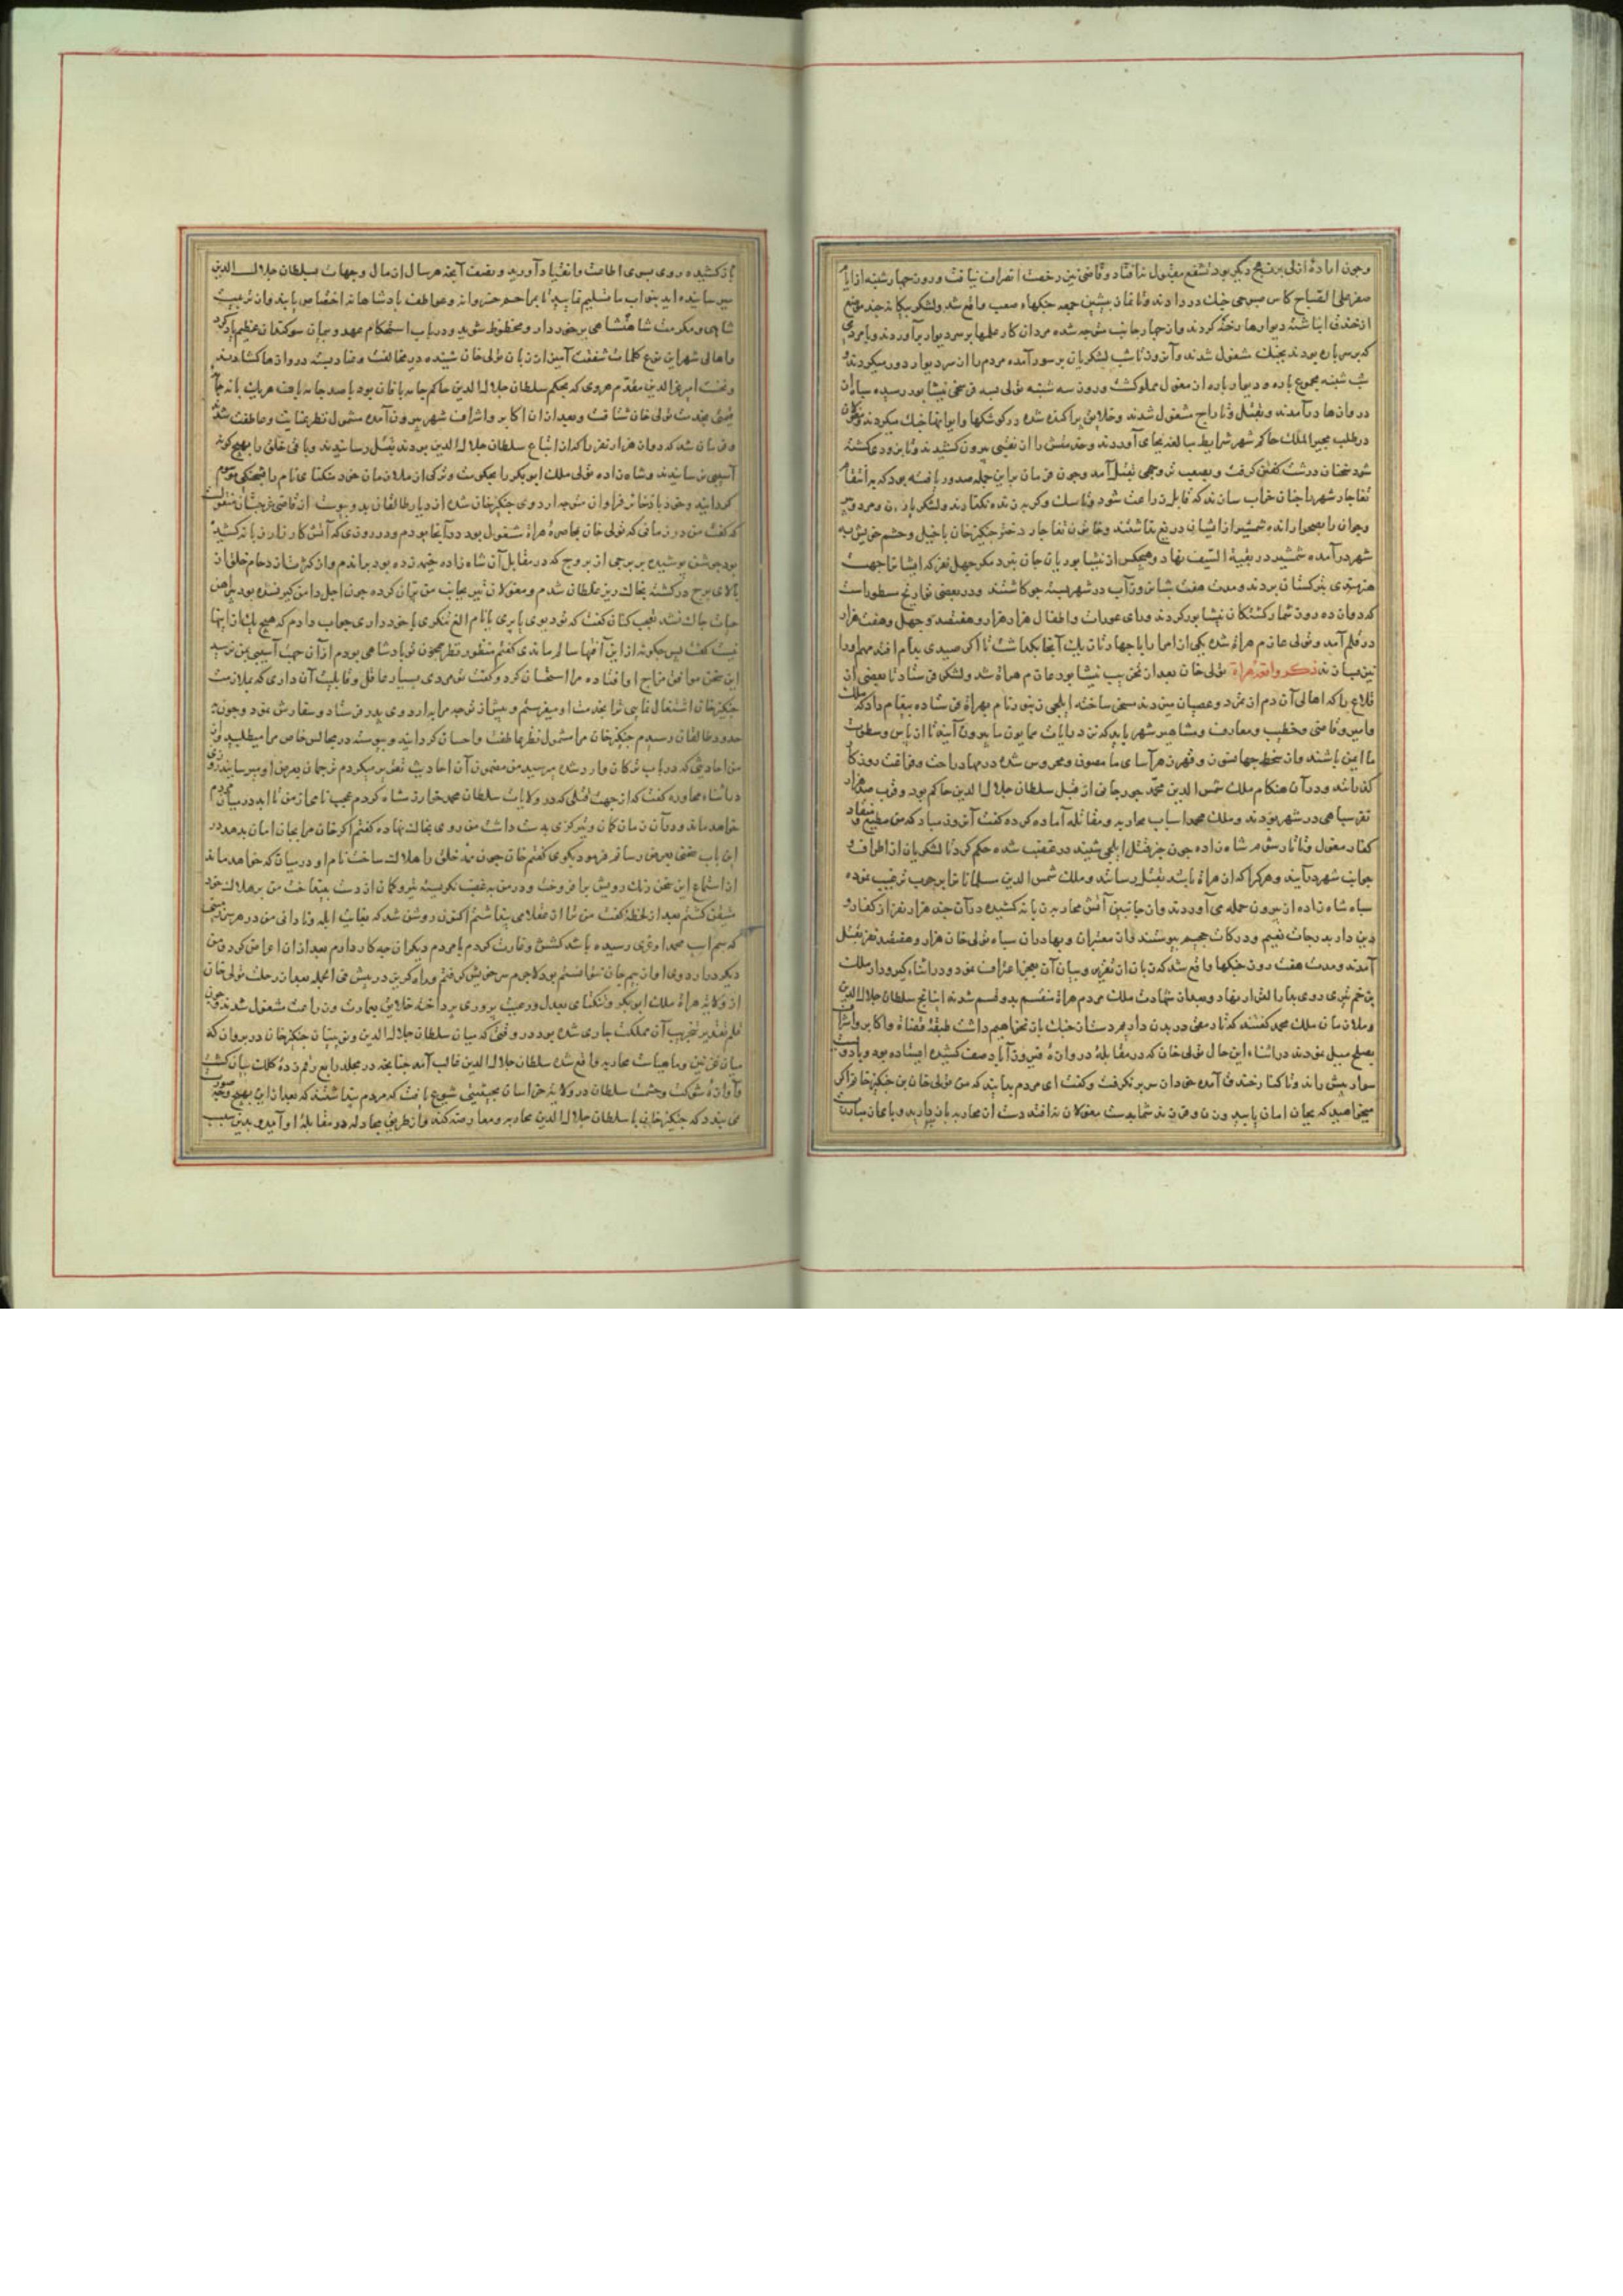 وچون ارادهٔ ازلی بر نهج دیگر بود تشفع مقبول نیافتاد وقاضی نیز رخصت انصراف نیافت وروز چهارشنبه
على الصباح کاس صبوحی جنك در دادند وتا نماز پیشین جمعه جنکهاء صعب واقع شد ولشکر بیکانه چند موضع
از خندق انباشته دیوارها رخنه کردند واز چهار جانب متوجه شده مردان کار علمها بر سر دیوار برآوردند وبا مردمی
که بر سر باره بودند بجنك مشغول شدند وآن روز تا شب لشکریان بر سور آمده مردم را از سر دیوار دور میکردند
شب شنبه مجموع باره ودیوار باره از مغول مملو کشت وروز سه شنبه تولی
در وازها درآمدند وبقتل وتاراج مشغول شدند وخلایق پراکنده شده در کوشکها وایوانها جنك میکردند
در طلب مجیر الملك حاکم شهر شرایط مبالغه بجای آوردند وحد منش را از نقبی بیرون کشیدند وتا زودی کشته
شود سخنان درشت کفتن کرفت وبصعب تر وجهی بقتل آمد وچون فرمان براین جمله صدور یافته بود که
تغاجار شهر را چنان خراب سازند که قابل زراعت شود وتا سك وکربه زنده نکذارند ولشکریان زن ومرد
وجوان را بصحرا رانده شمشیر از ایشان دریغ نداشتند وخاتون تغاجار دختر جنکیز خان با خیل وحشم خویش به
شهر درآمده شمشیر در بقیة السیف نهاد وهیچکس از نیشابوریان جان نبرد مکر چهل نفر که ایشانرا جهت
هنرمندی بترکستان بردند ومدت هفت شبانروز آب در شهر بسته جو کاشتند ودر بعضی تواریخ مسطور است
که دوازده روز شمار کشتکان نیشابور کردند ورای عورات واطفال هزار هزار وهفتصد وچهل وهفت هزار
در قلم آمد وتولی عازم هراة شده یکی از امرا را با چهار تازیك آنجا بکذاشت تا اکر صیدی بدام افتد
ذکر واقعهٔ هراة تولی خان بعد از تخریب نیشابور عازم هراة شد ولشکر فرستاد تا بعضی از
قلاع را که اهالی آن دم از تمرد وعصیان میزدند مسخر ساخته ایلچی زنبور نام بهراة فرستاده پیغام داد که ملك
وامیر وقاضی وخطیب ومعارف ومشاهیر شهر باید که نزد رایات همایون ما بیرون آیند تا از باس وسطوت
ما ایمن باشند واز سخط جهانسوز وقهر زهرآسای ما مصون ومحروس شده در مهاد راحت وفراغت روزکار
کذرانند ودر آن هنکام ملك شمس الدین محمد جوزجانی از قبل سلطان جلال الدین حاکم بود وقرب صد هزار
نفر سپاهی در شهر بودند وملك محمد اسباب محاربه ومقاتله آماده کرده کفت آن روز مباد که من مطیع ومنقاد
کفار مغول وتاتار شوم شاه زاده چون خبر قتل ایلچی شنید در غضب شده حکم کرد تا لشکریان از اطراف
جوانب شهر درآیند وهرکرا که از هراة یابند بقتل رسانند وملك شمس الدین مسلمانانرا بر حرب ترغیب نموده
سپاه شاه زاده از بیرون حمله می آوردند واز جانبین آتش محاربه زبانه کشیده در آن چند هزار نفر از کفار
دین دار بدرجات نعیم ودرکات جحیم پیوستند واز معتبران وبهادران سپاه تولی خان هزار وهفتصد نفر بقتل
آمدند ومدت هفت روز جنکها واقع شد که زبان از تقریر وبیان آن بعجز اعتراف نمود ودر اثناء کیر ودار ملك
بزخم تیری روی بدار القرار نهاد وبعد از شهادت ملك مردم هراة منقسم بدو قسم شدند اتباع سلطان جلال الدین
وملازمان ملك محمد کفتند که تا رمقی در بدن داریم دست از جنك باز نخواهیم داشت طبقهٔ قضاة واکابر واشراف
بصلح میل نمودند در اثناء این حال تولی خان که در مقابلهٔ دروازهٔ فیروزآباد صف کشیده ایستاده بود وبا دویست
سوار پیش راند وتا کنار خندق آمده خود از سر بر کرفت وکفت ای مردم بدانید که من تولی خان بن جنکیز خانم اکر
میخواهید که بجان امان یابید وزن وفرزند شما بدست مغولان نه افتد دست از محاربه باز دارید
باز کشیده روی بسوی اطاعت وانقیاد آورید ونصف آنچه هر سال از مال وجهات بسلطان جلال الدین
میرسانیده اید بنواب ما تسلیم نمایید تا بمراحم خسروانه وعواطف پادشاهانه اختصاص یابید واز تربیت
شاهی ومکرمت شاهنشاهی برخوردار ومحظوظ شوید ودر باب استحکام عهد وپیمان سوکندان عظیم یاد کرد
واهالی شهر این نوع کلمات شفقت آمیز از زبان تولی خان شنیده در مخالفت وعناد بسته دروازها کشادند
ونخست امیر عز الدین مقدم هروی که بحکم سلطان جلال الدین حاکم جامه بافان بود با صد جامه باف هر یك با نه جامه
قیمتی بخدمت تولی خان شتافت وبعد از آن اکابر واشراف شهر بیرون آمده مشمول نظر عنایت وعاطفت شدند
وفرمان شد که دوازده هزار نفر را که از اتباع سلطان جلال الدین بودند بقتل رسانیدند وباقی خلق را بهیچ کونه
آسیبی نرسانیدند وشاه زاده تولی ملك ابوبکر را بحکومت وترکی از ملازمان خود منکتای نام را بشحنکی موسوم
کردانید وخود با ذخایر فراوان متوجه اردوی جنکیز خان شده از دیار طالقان بدو پیوست از قاضی غرجستان منقولست
که کفت من در زمانی که تولی خان بمحاصرهٔ هراة مشغول بود در آنجا بودم ودر روزی که آتش کارزار زبانه کشیده
بود جوشن پوشیده بر برجی از بروج که در مقابل آن شاه زاده خیمه زده بود برآمدم واز کثرت ازدحام خلق از
بالای برج در کشته بخاك ریز غلطان شدم ومغولان تیر بجانب من پران کرده چون اجل دامن کیر نشده بود پیراهن
حیات چاك نشد تعجب کنان کفت که تو دیوی یا پری یا نام الغ تنکری با خود داری جواب دادم که هیچ یك از اینها
نیست کفت پس چکونه از این آفتها سالم ماندی کفتم منظور نظر همچون تو پادشاهی بودم از آن جهت آسیبی بمن نرسید
این سخن موافق مزاج او افتاده مرا استحسان کرد وکفت تو مردی بسیار عاقل وقابلیت آن داری که بملازمت
جنکیز خان اشتغال نمایی ترا بخدمت او میفرستم وپیش از توجه مرا به اردوی پدر فرستاد وسفارش نمود وچون به
حدود طالقان رسیدم جنکیز خان مرا مشمول نظر عاطفت واحسان کردانید وپیوسته در مجالس خاص مرا میطلبید
من احادیثی که در باب ترکان وارد شده میرسید من مضمون آن احادیث تقریر میکردم ترجمان بعرض او میرسانید روزی
در اثناء محاوره کفت که از جهت قتلی که در ولایات سلطان محمد خوارزمشاه کردم عجب نامی از من تا ابد در میان مردم
خواهد ماند ودر آن زمان کمان وتیر کزی به دست داشت من روی بخاك نهاده کفتم اکر خان مرا بجان امان بدهد در
این باب سخنی بعرض رسانم فرمود بکوی کفتم خان چون همه خلق را هلاك ساخت نام او در میان که خواهد ماند
از استماع این سخن رنك رویش برافروخت ودر من به غضب نکریسته تیر وکمان از دست بینداخت من بر هلاك خود
متیقن کشتم بعد از لحظهٔ کفت من ترا از عقلا می پنداشتم اکنون روشن شد که بغایت ابله ونادانی من در هر سرزمین
که سم اسب محمد اوغری رسیده باشد کشش وغارت کردم با مردم دیکران چه کار دارم بعد از آن اعراض کرد ومن
دیکر در اردوی او از بیم جان نتوانستم بود لاجرم سر خویش کرفتم وراه کریز در پیش فی الجمله بعد از رحلت تولی خان
از ولایة هراة ملك ابوبکر ومنکتای بعدل ورعیت پروری پرداخته خلایق بعمارت وزراعت مشغول شدند چون
قلم تقدیر بتخریب آن مملکت جاری شده بود در وقتی که میان سلطان جلال الدین ولشکر جنکیز خان در پروان که
میان غزنین وبامیانست محاربه واقع شده سلطان جلال الدین غالب آمد چنانچه در مجلد رابع رقم زدهٔ کلك بیان کشت
وآوازهٔ شوکت وحشمت سلطان در ولایة خراسان بحیثیتی شیوع یافت که مردم پنداشتند که بعد از این بهیچ وجه صورت
نمی بندد که جنکیز خان با سلطان جلال الدین محاربه ومعارضه کند واز طریق مجادله در مقابلهٔ او آید بدین سبب